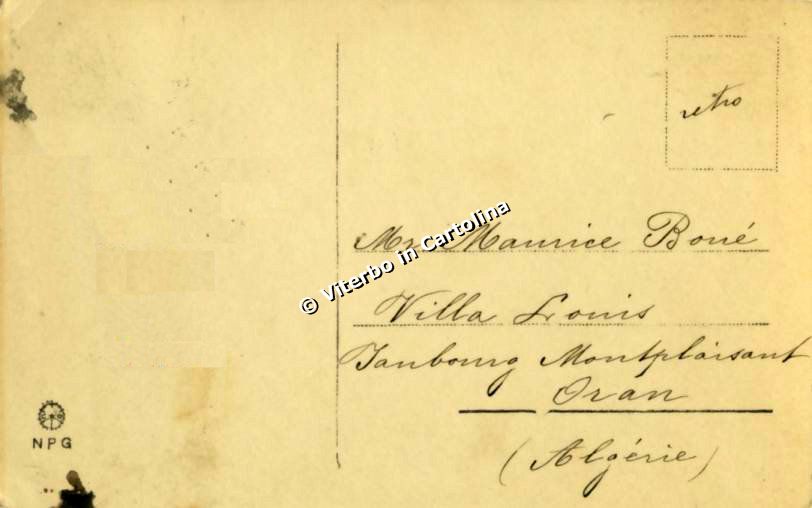 retro
Mr Maurice Boué
Villa Louis
Faubourg Montplaisant
Oran
(Algérie)
© Viterbo in Cartolina
NPG